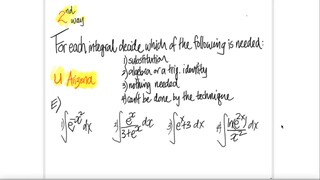 2nd way
For each integral decide which of the following is needed:
1) substitution
2) algebra or a trig. identity
3) nothing needed
4) can't be done by the technique
U Arizona
E)
1) ∫e^-x² dx 2) ∫e^x/3+e^x dx 3) ∫e^x+3 dx 4) ∫ln(e^2x)/x² dx